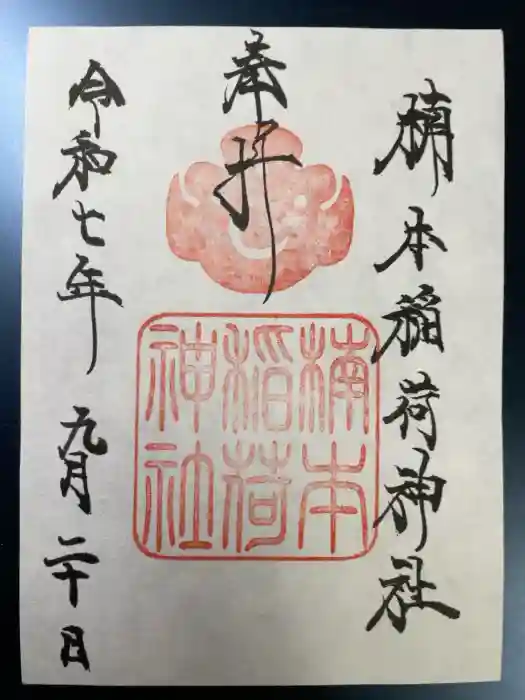 楠本稲荷神社
奉拝
楠本
稲荷
神社
令和七年 九月 二十日